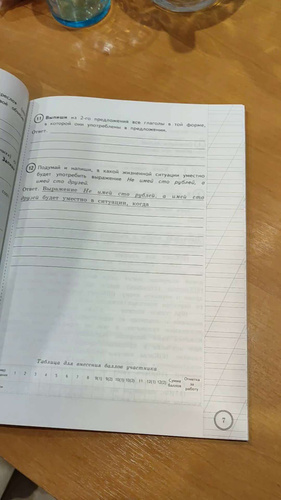 11 Выпиши из 2-го предложения все глаголы в той форме,
в которой они употреблены в предложении.
Ответ
12 Подумай и напиши, в какой жизненной ситуации уместно
будет употребить выражение Не имей сто рублей, а
имей сто друзей.
Ответ Выражение Не имей сто рублей, а имей сто
друзей будет уместно в ситуации, когда
Таблица для внесения баллов участника
1 2 3 4 5 6 7 8 9(1) 9(2) 10(1) 10(2) 11 12(1) 12(2) Сумма баллов Отметка за работу
7